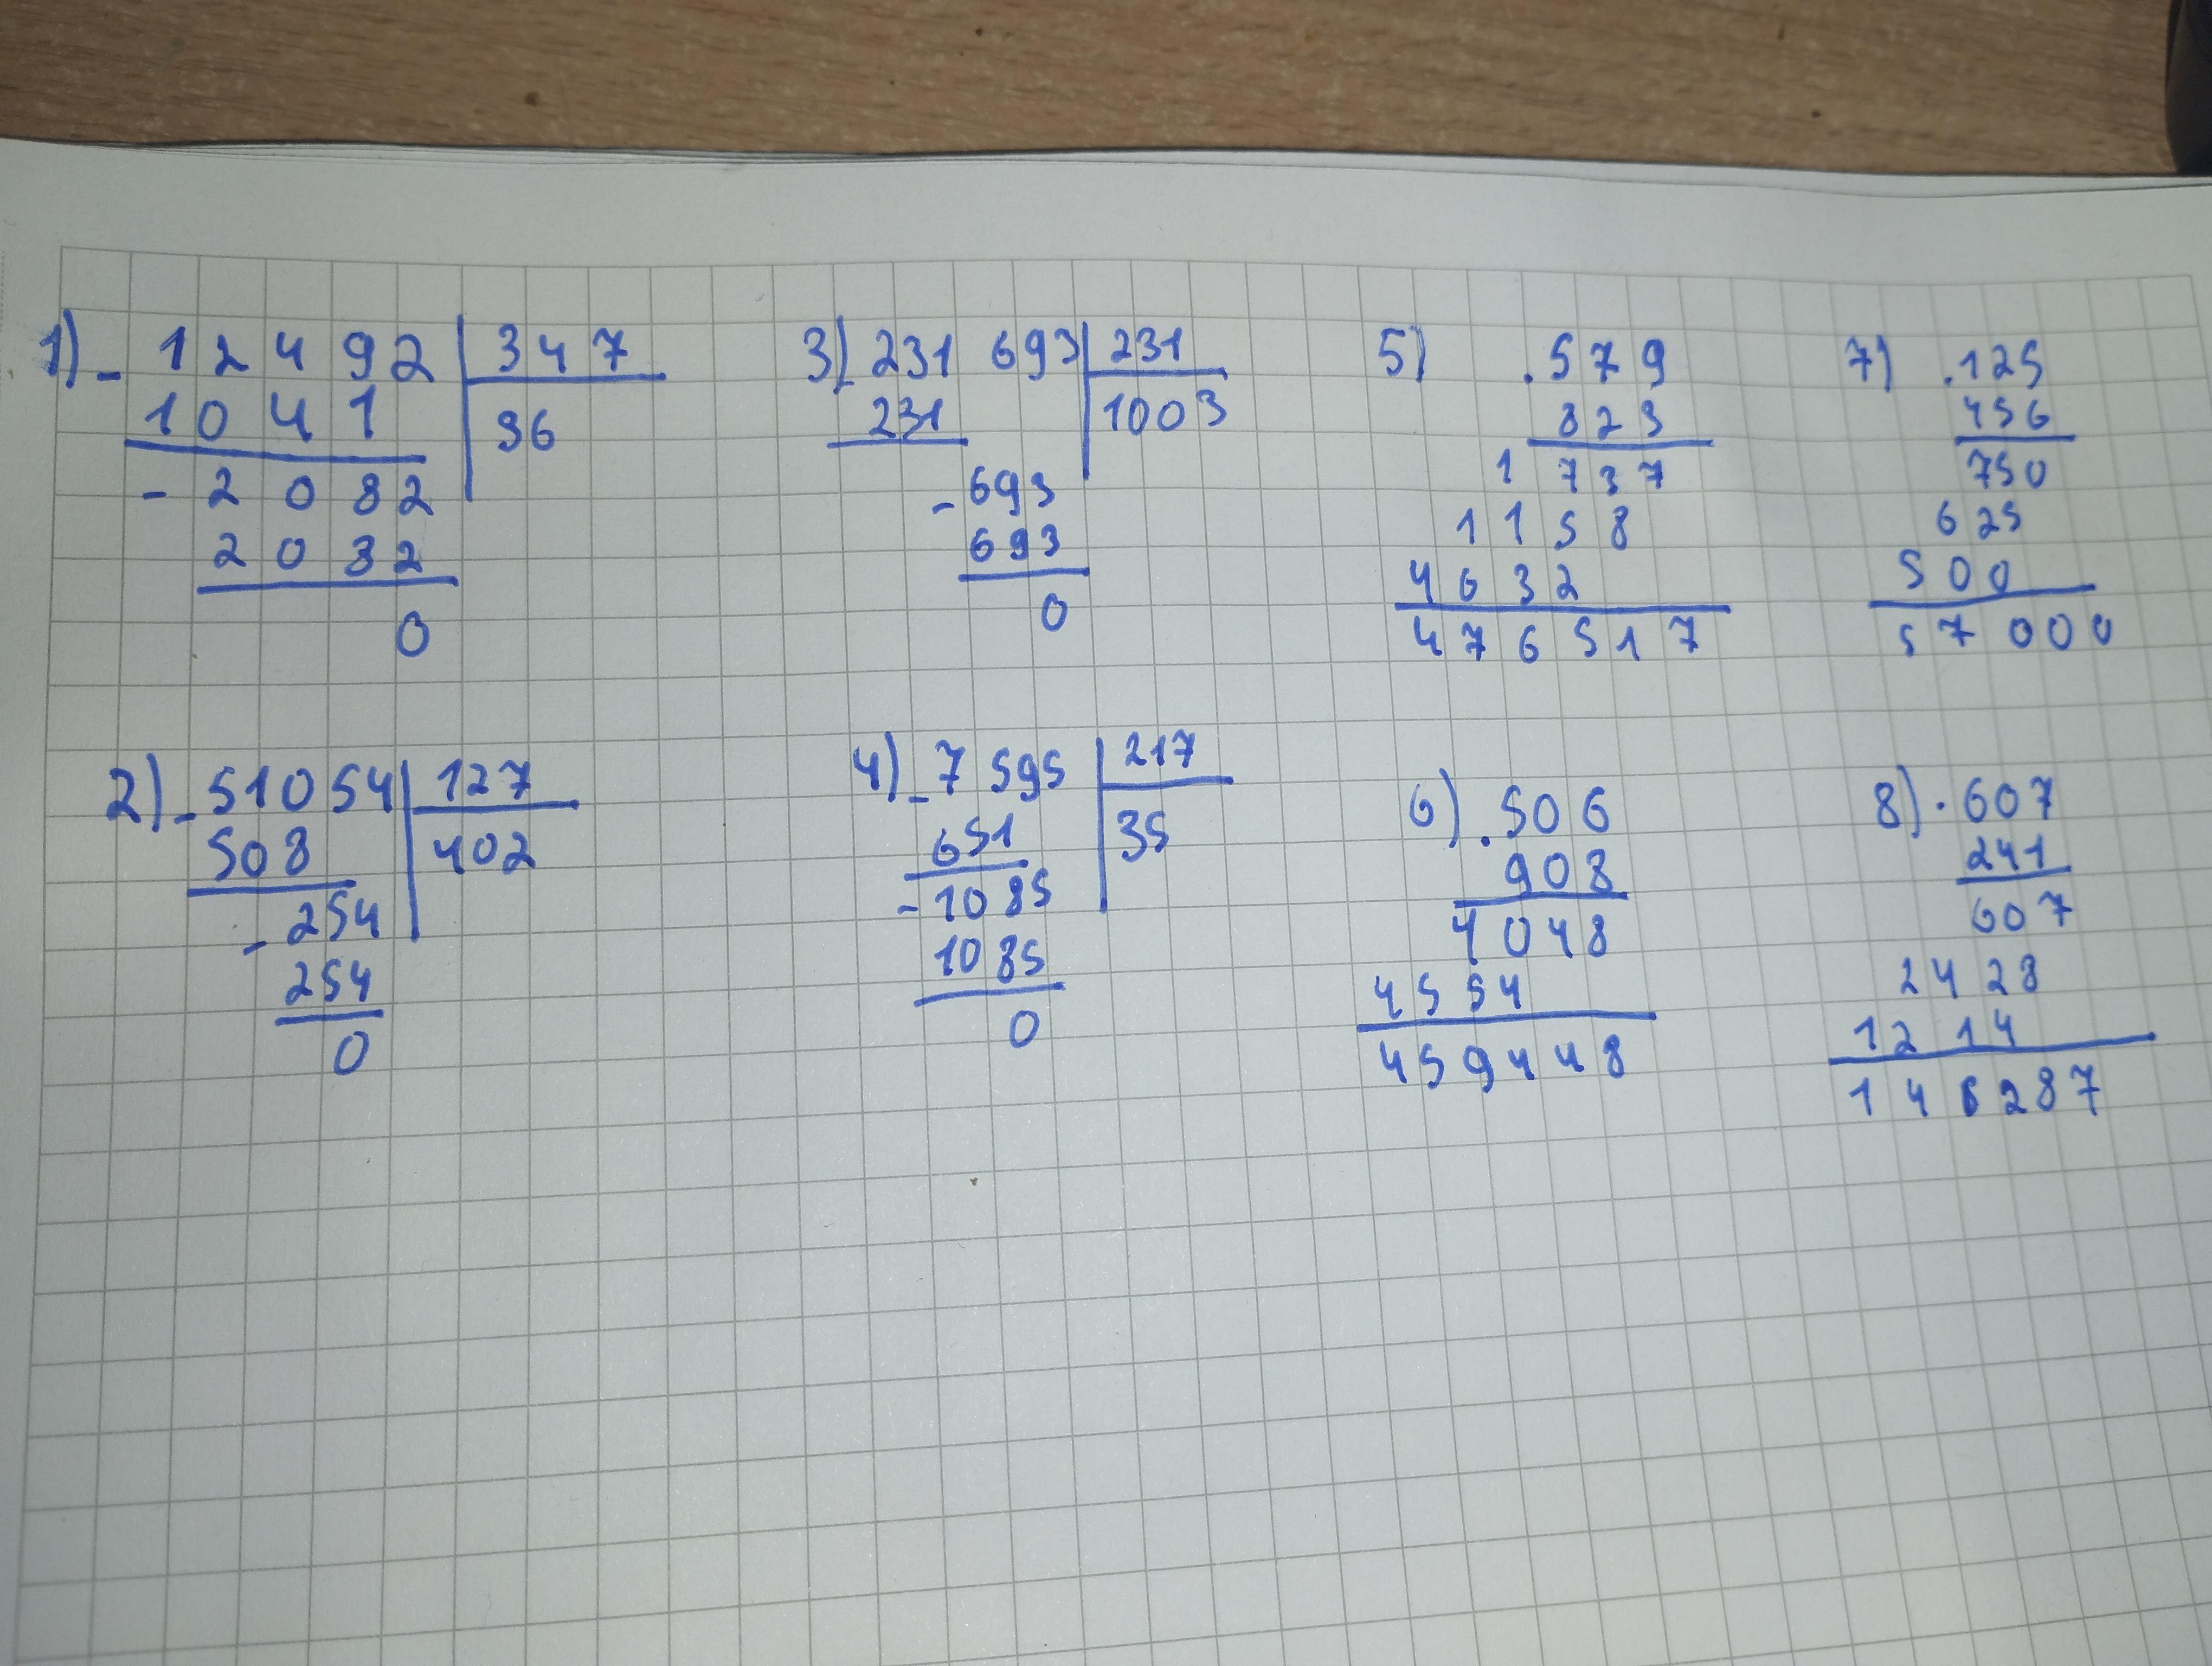 1) - 12492 | 347
1041 | 36
- 2082
2082
0
2) - 51054 | 127
508 | 402
- 254
254
0
3) - 231 693 | 231
231 | 1003
- 693
693
0
4) - 7 595 | 217
651 | 35
- 1085
1085
0
5) . 579
823
1 737
1158
4632
476517
6) . 506
908
4048
4554
459448
7) . 125
456
750
625
500
57 000
8) . 607
241
607
2428
1214
146287